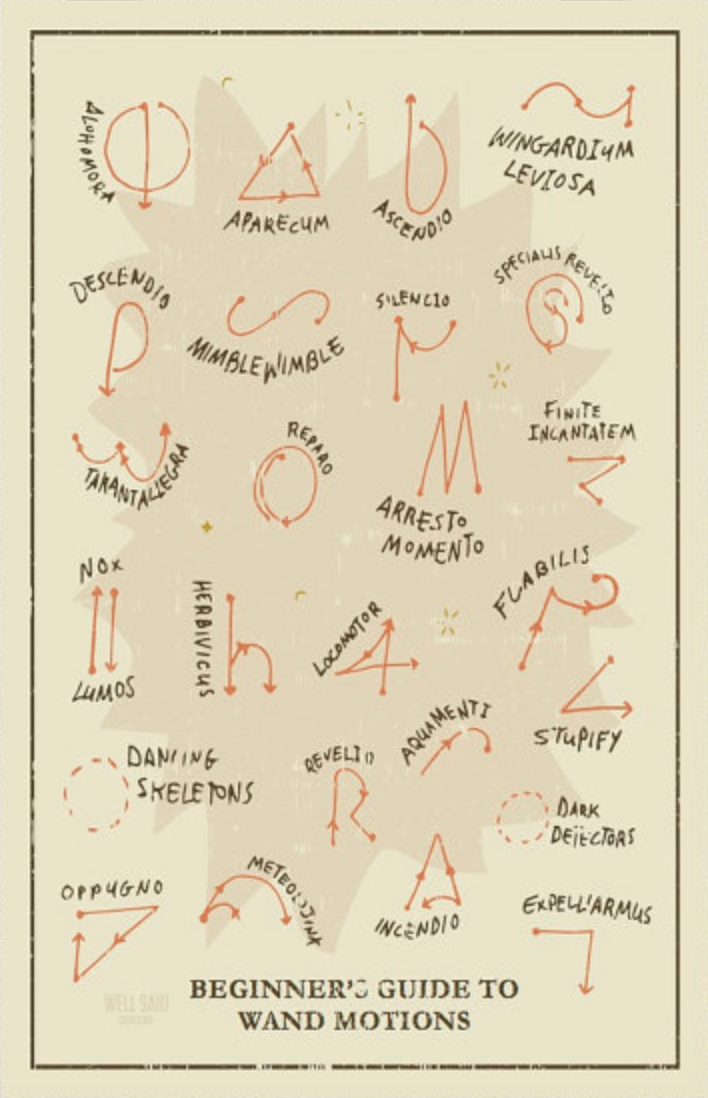 ALOHOMORA
APARECUM
ASCENDIO
WINGARDIUM
LEVIOSA
DESCENDIO
MIMBLEWIMBLE
SILENCIO
SPECIALIS REVELIO
TARANTALLEGRA
REPARO
ARRESTO
MOMENTO
FINITE
INCANTATEM
NOX
LUMOS
HERBIVICUS
LOCOMOTOR
FLABILIS
STUPIFY
DANCING
SKELETONS
REVELIO
AQUAMENTI
DARK
DETECTORS
OPPUGNO
METEOLOJINX
INCENDIO
EXPELLIARMUS
BEGINNER'S GUIDE TO
WAND MOTIONS
WELL SAID